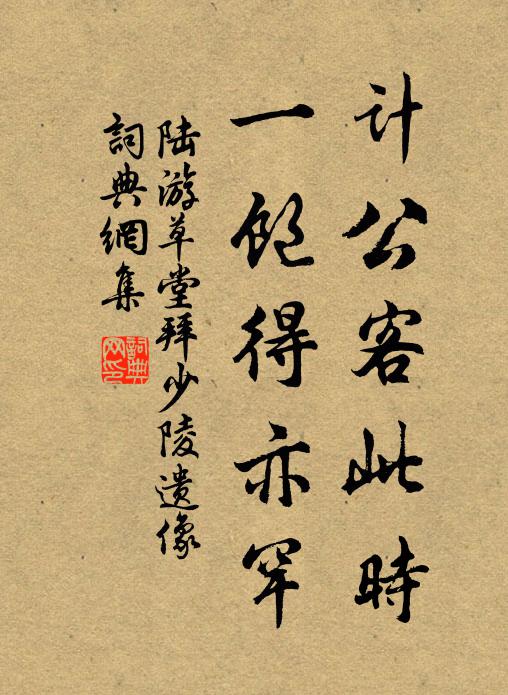 計公客此時
一飽得亦罕
陸游草堂拜少陵遺像
詞典網集
詞典網印